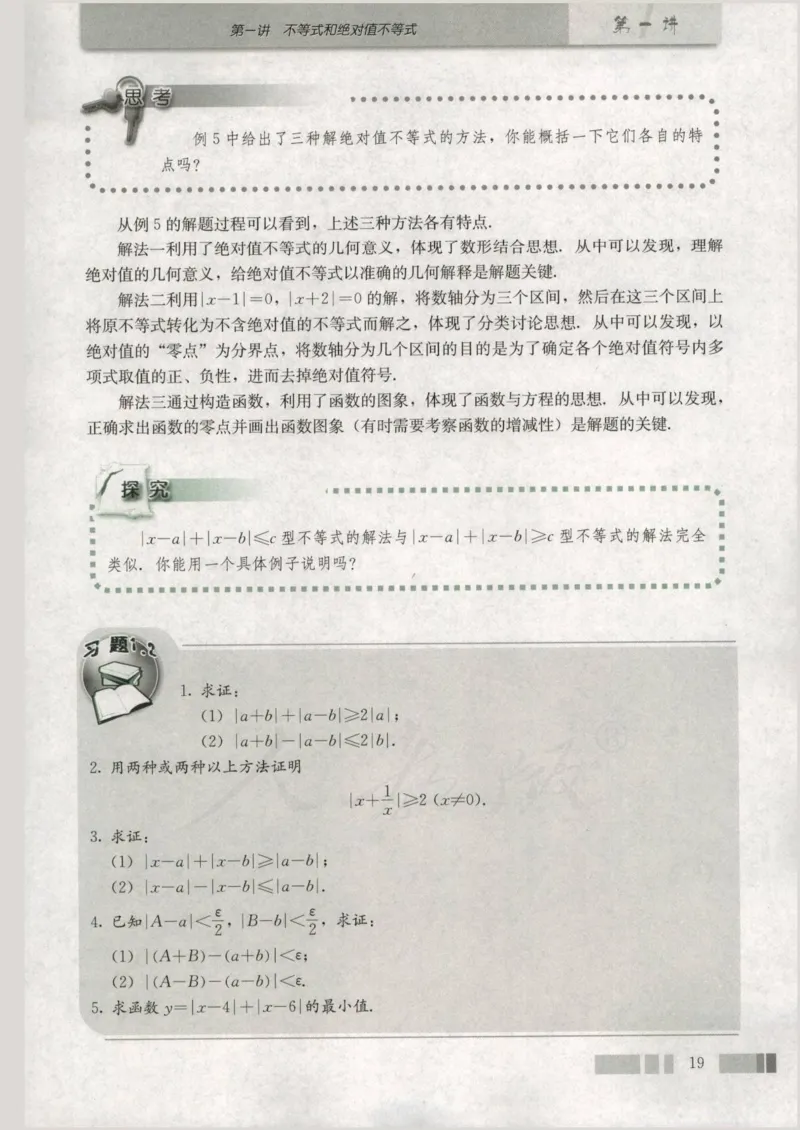 第一讲 不等式和绝对值不等式
第一讲
思考
例 5 中给出了三种解绝对值不等式的方法，你能概括一下它们各自的特
点吗？
从例 5 的解题过程可以看到，上述三种方法各有特点.
解法一利用了绝对值不等式的几何意义，体现了数形结合思想. 从中可以发现，理解
绝对值的几何意义，给绝对值不等式以准确的几何解释是解题关键.
解法二利用|x−1|=0，|x+2|=0 的解，将数轴分为三个区间，然后在这三个区间上
将原不等式转化为不含绝对值的不等式而解之，体现了分类讨论思想. 从中可以发现，以
绝对值的“零点”为分界点，将数轴分为几个区间的目的是为了确定各个绝对值符号内多
项式取值的正、负性，进而去掉绝对值符号.
解法三通过构造函数，利用了函数的图象，体现了函数与方程的思想. 从中可以发现，
正确求出函数的零点并画出函数图象（有时需要考察函数的增减性）是解题的关键.
探究
|x−a|+|x−b|≤c 型不等式的解法与|x−a|+|x−b|≥c 型不等式的解法完全
类似. 你能用一个具体例子说明吗？
习题1.2
1. 求证：
(1) |a+b|+|a−b|≥2|a|；
(2) |a+b|−|a−b|≤2|b|.
2. 用两种或两种以上方法证明
|x+1/x|≥2 (x≠0).
3. 求证：
(1) |x−a|+|x−b|≥|a−b|；
(2) |x−a|−|x−b|≤|a−b|.
4. 已知|A−a|<ε/2，|B−b|<ε/2，求证：
(1) |(A+B)−(a+b)|<ε；
(2) |(A−B)−(a−b)|<ε.
5. 求函数 y=|x−4|+|x−6|的最小值.
19